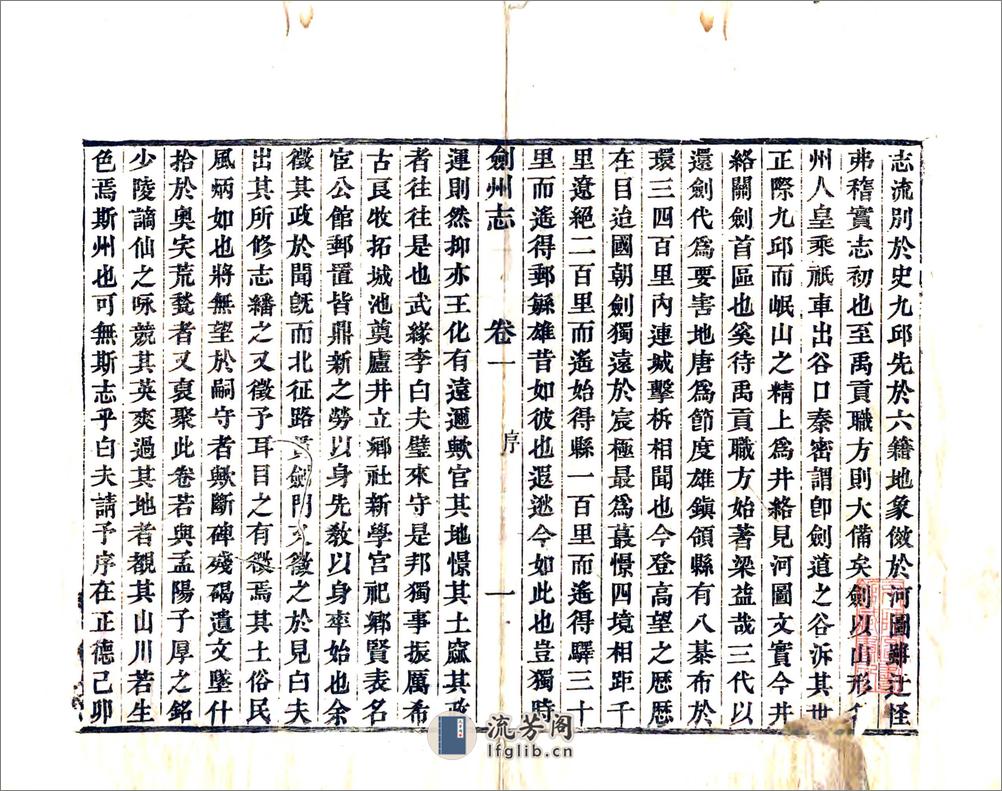 志流別於史九邱先於六籍地象倣於河圖雖迂怪
弗稽實志初也至禹貢職方則大備矣劍以山形
州人皇乘祇車出谷口秦密謂卽劍道之谷泝其世
正際九邱而岷山之精上爲井絡見河圖文實今井
絡關劍首區也奚待禹貢職方始著梁益哉三代以
還劍代爲要害地唐爲節度雄鎭領縣有八棊布於
環三四百里內連城擊柝相聞也今登高望之歷歷
在目迨國朝劍獨遠於宸極最爲蕞憬四境相距千
里遼絕二百里而遙始得縣一百里而遙得驛三十
里而遙得郵繇雄昔如彼也遐逖今如此也豈獨時
劍州志 卷一 序 一
運則然抑亦王化有遠邇歟官其地憬其土窳其政
者往往是也武緣李白夫璧來守是邦獨事振厲希
古良牧拓城池奠廬井立鄉社新學官祀鄉賢表名
宦公館郵置皆鼎新之勞以身先敎以身率始也余
徵其政於聞旣而北征路劍門又徵之於見白夫
出其所修志繙之又徵予耳目之有徵焉其土俗民
風炳如也將無望於嗣守者歟斷碑殘碣遺文墜什
拾於奧穾荒甃者又裒聚此卷若與孟陽子厚之銘
少陵謫仙之咏競其英爽過其地者覩其山川若生
色焉斯州也可無斯志乎白夫請予序在正德己卯
流芳阁
lfglib.cn